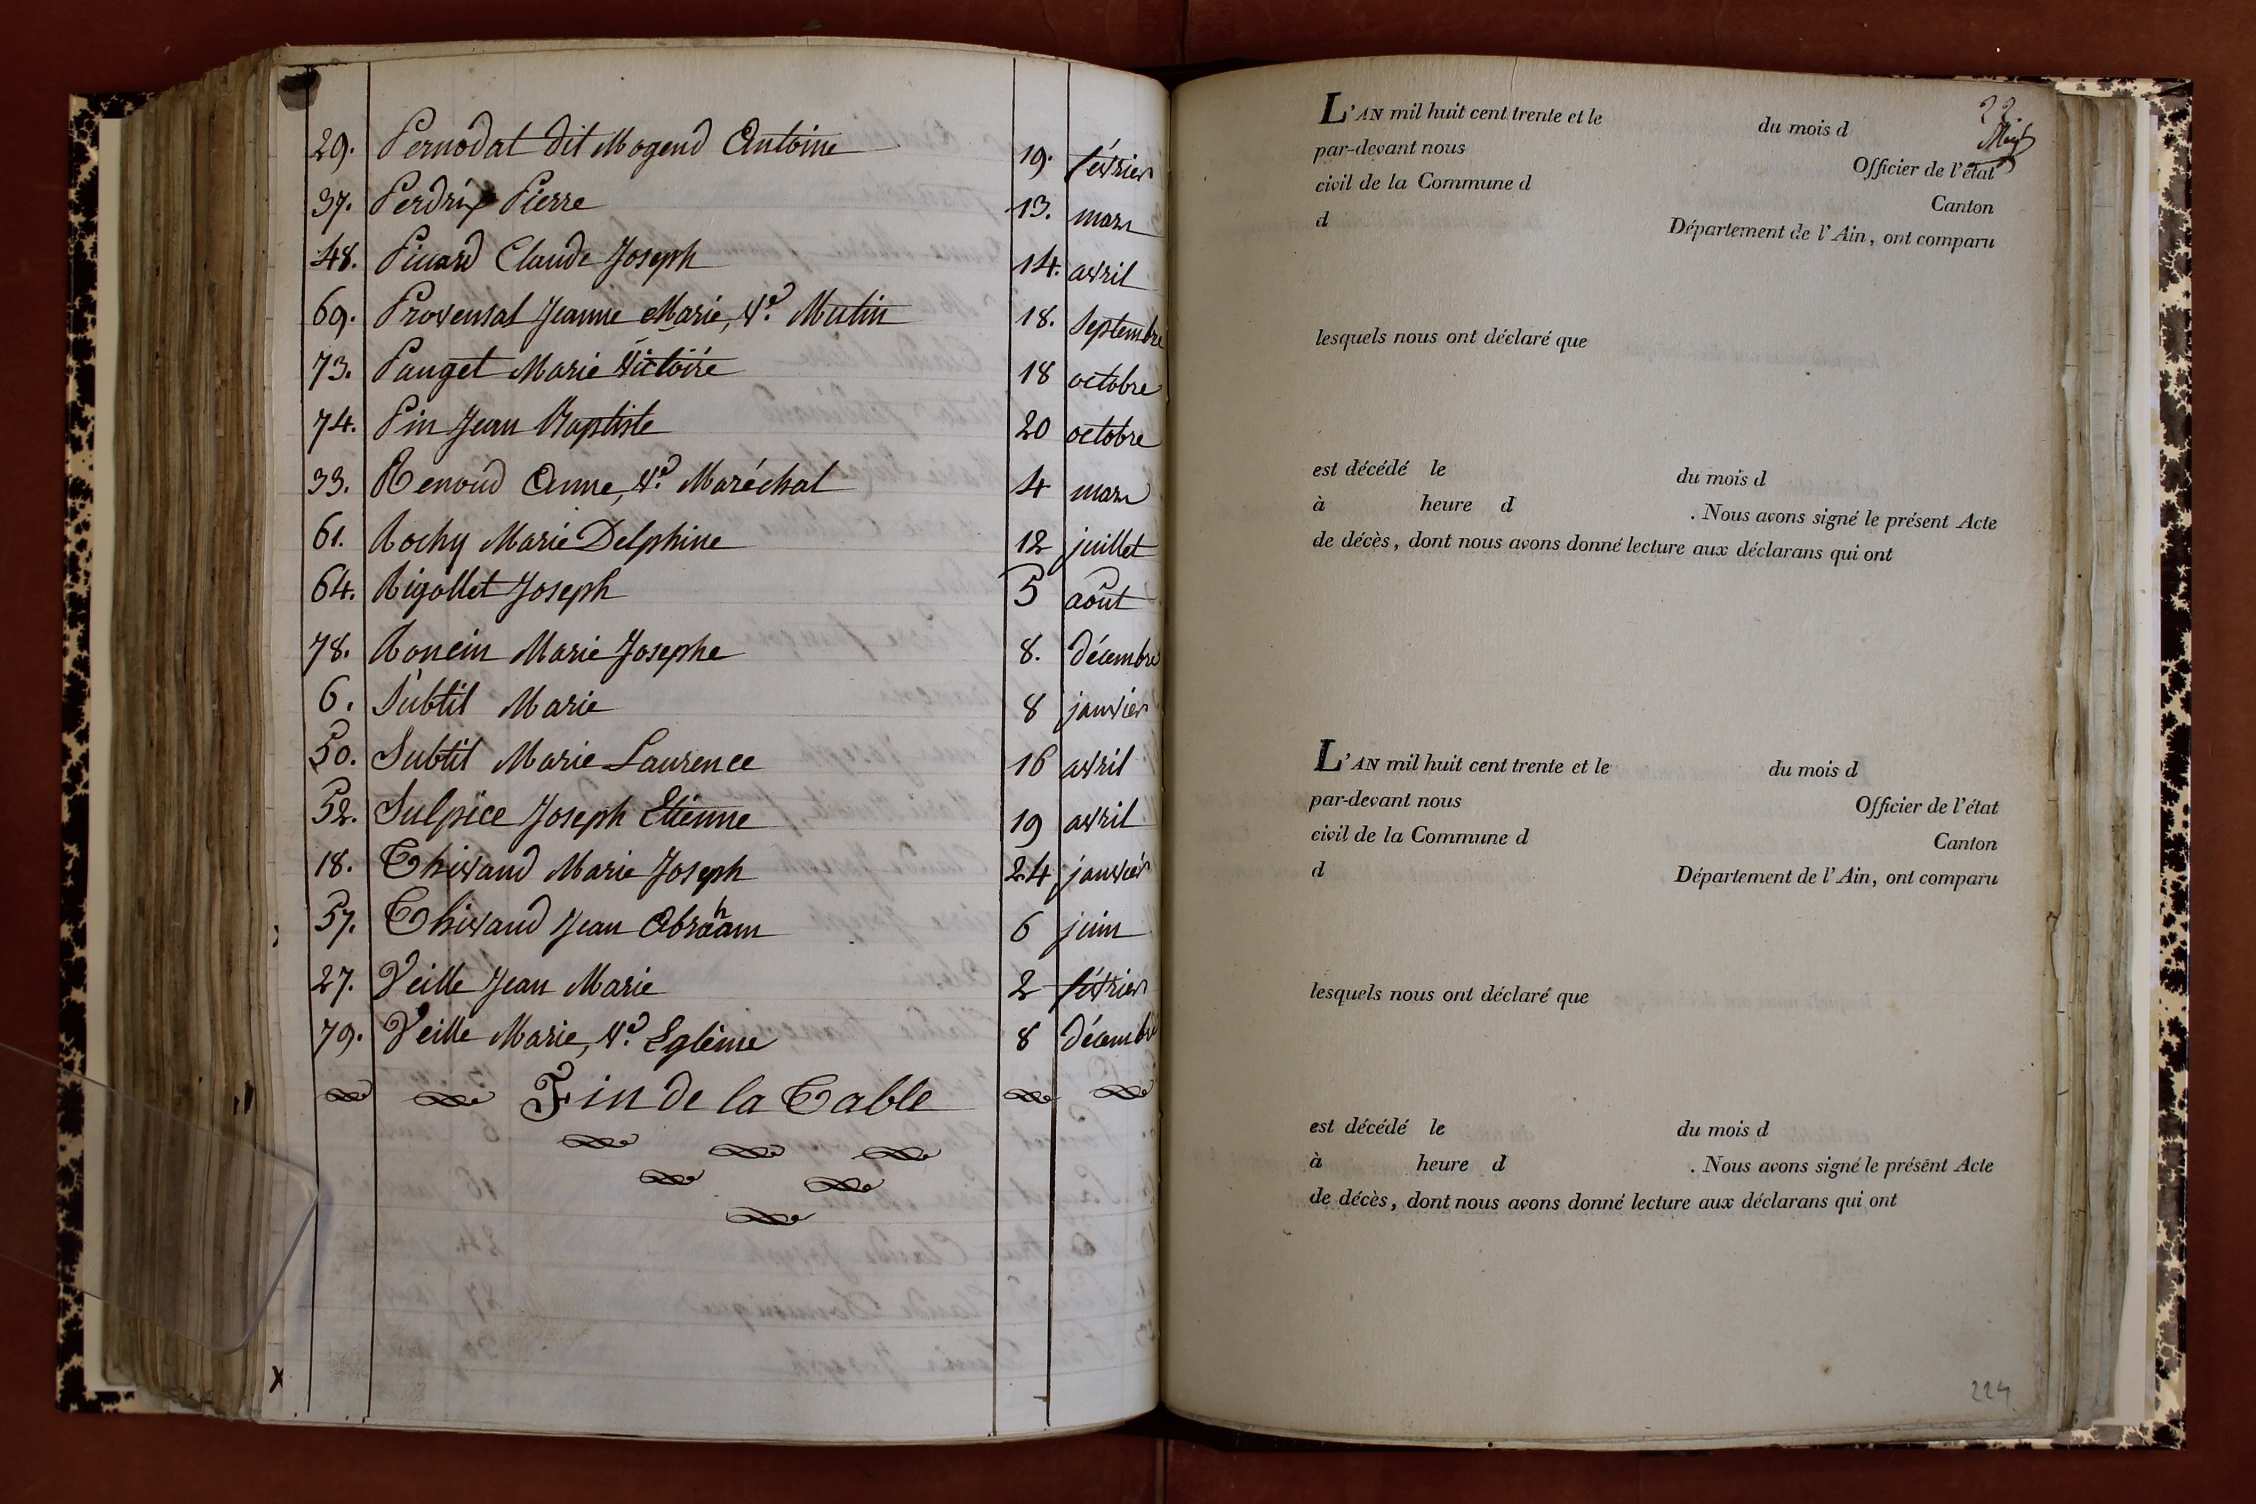 29. Pernodat dit Mogend Antoine 19. février
37. Perdrix Pierre 13. mars
48. Picard Claude Joseph 14. avril
69. Provensal Jeanne Marie, Ve. Mutin 18. Septembre
73. Pauget Marie Victoire 18 octobre
74. Pin Jean Baptiste 20 octobre
33. Renoud Anne, Ve. Maréchal 4 mars
61. Rochy Marie Delphine 12 juillet
64. Rigollet Joseph 5 août
78. Ronein Marie Josephe 8. décembre
6. Subtil Marie 8 janvier
50. Subtil Marie Laurence 16 avril
52. Sulpice Joseph Etienne 19 avril
18. Thivaud Marie Joseph 24 janvier
57. Thivaud Jean Abraham 6 juin
27. Veille Jean Marie 2 février
79. Veille Marie, Ve. Eglême 8 décembre
Fin de la Table
x
22.
L'AN mil huit cent trente et le du mois d
par-devant nous Officier de l'état
civil de la Commune d Canton
d Département de l'Ain, ont comparu
lesquels nous ont déclaré que
est décédé le du mois d
à heure d . Nous avons signé le présent Acte
de décès, dont nous avons donné lecture aux déclarans qui ont
L'AN mil huit cent trente et le du mois d
par-devant nous Officier de l'état
civil de la Commune d Canton
d Département de l'Ain, ont comparu
lesquels nous ont déclaré que
est décédé le du mois d
à heure d . Nous avons signé le présent Acte
de décès, dont nous avons donné lecture aux déclarans qui ont
224